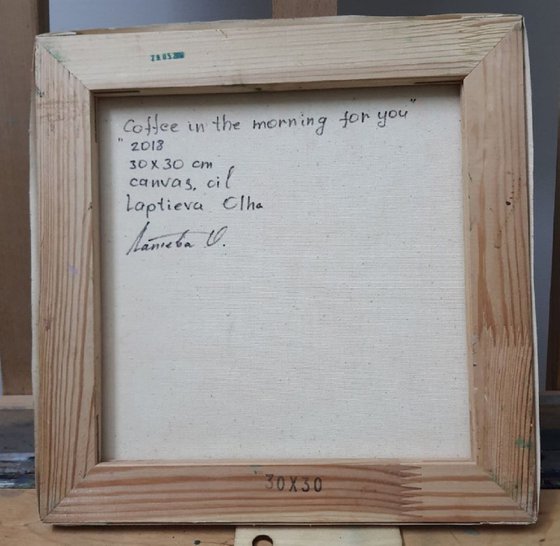 "Coffee in the morning for you"
2018
30x30 cm
canvas, oil
Laptieva Olha
Лаптева О.
30X30